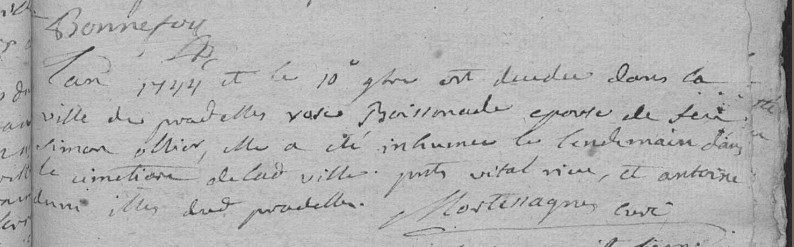 Bonnefoy
Lan 1744 et le 10e 9bre est decedee dans la
ville de pradelles rose Boissonade epouse de feu
simon ollier, elle a été inhumee le lendemain dans
le cimetiere de lad ville. pnts vital rieu, et antoine
illes dud pradelles. Mortesagnes curé